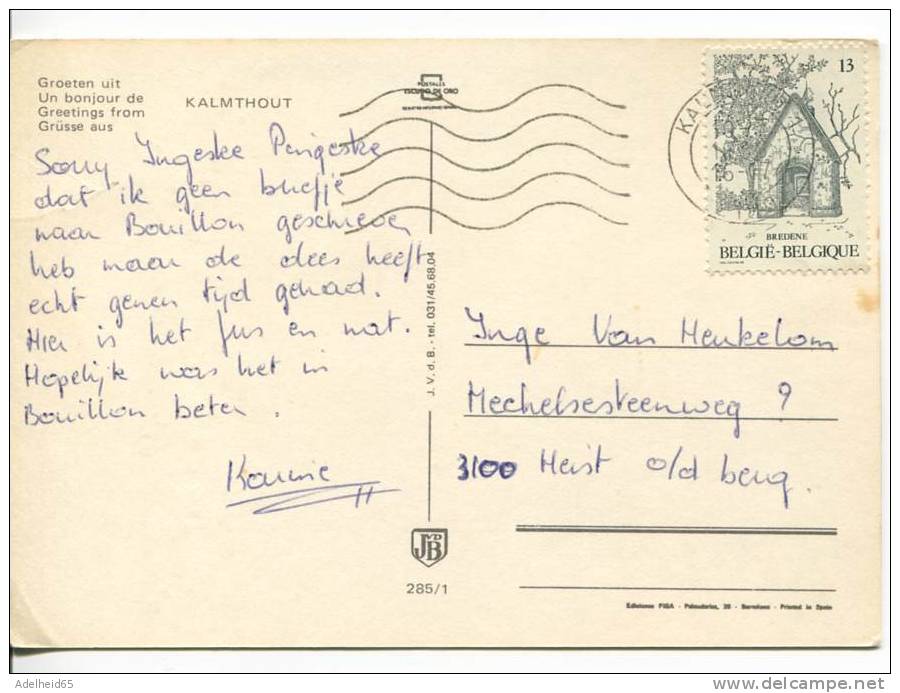 Groeten uit
Un bonjour de
Greetings from
Grüsse aus
KALMTHOUT
POSTALES
ESCUDO DE ORO
Sorry Ingeske Pingeske
dat ik geen briefje
naar Bouillon geschreven
heb maar de dees heeft
echt genen tijd gehad.
Hier is het fris en nat.
Hopelijk was het in
Bouillon beter.
J.V.d.B. - tel. 031/45.68.04
JVDB
285/1
13
BREDENE
BELGIË-BELGIQUE
Inge Van Heukelom
Mechelsesteenweg ?
3100 Heist o/d berg.
Ediciones FISA - Palaudarias, 26 - Barcelona - Printed in Spain
Adelheid65
delcampe.net